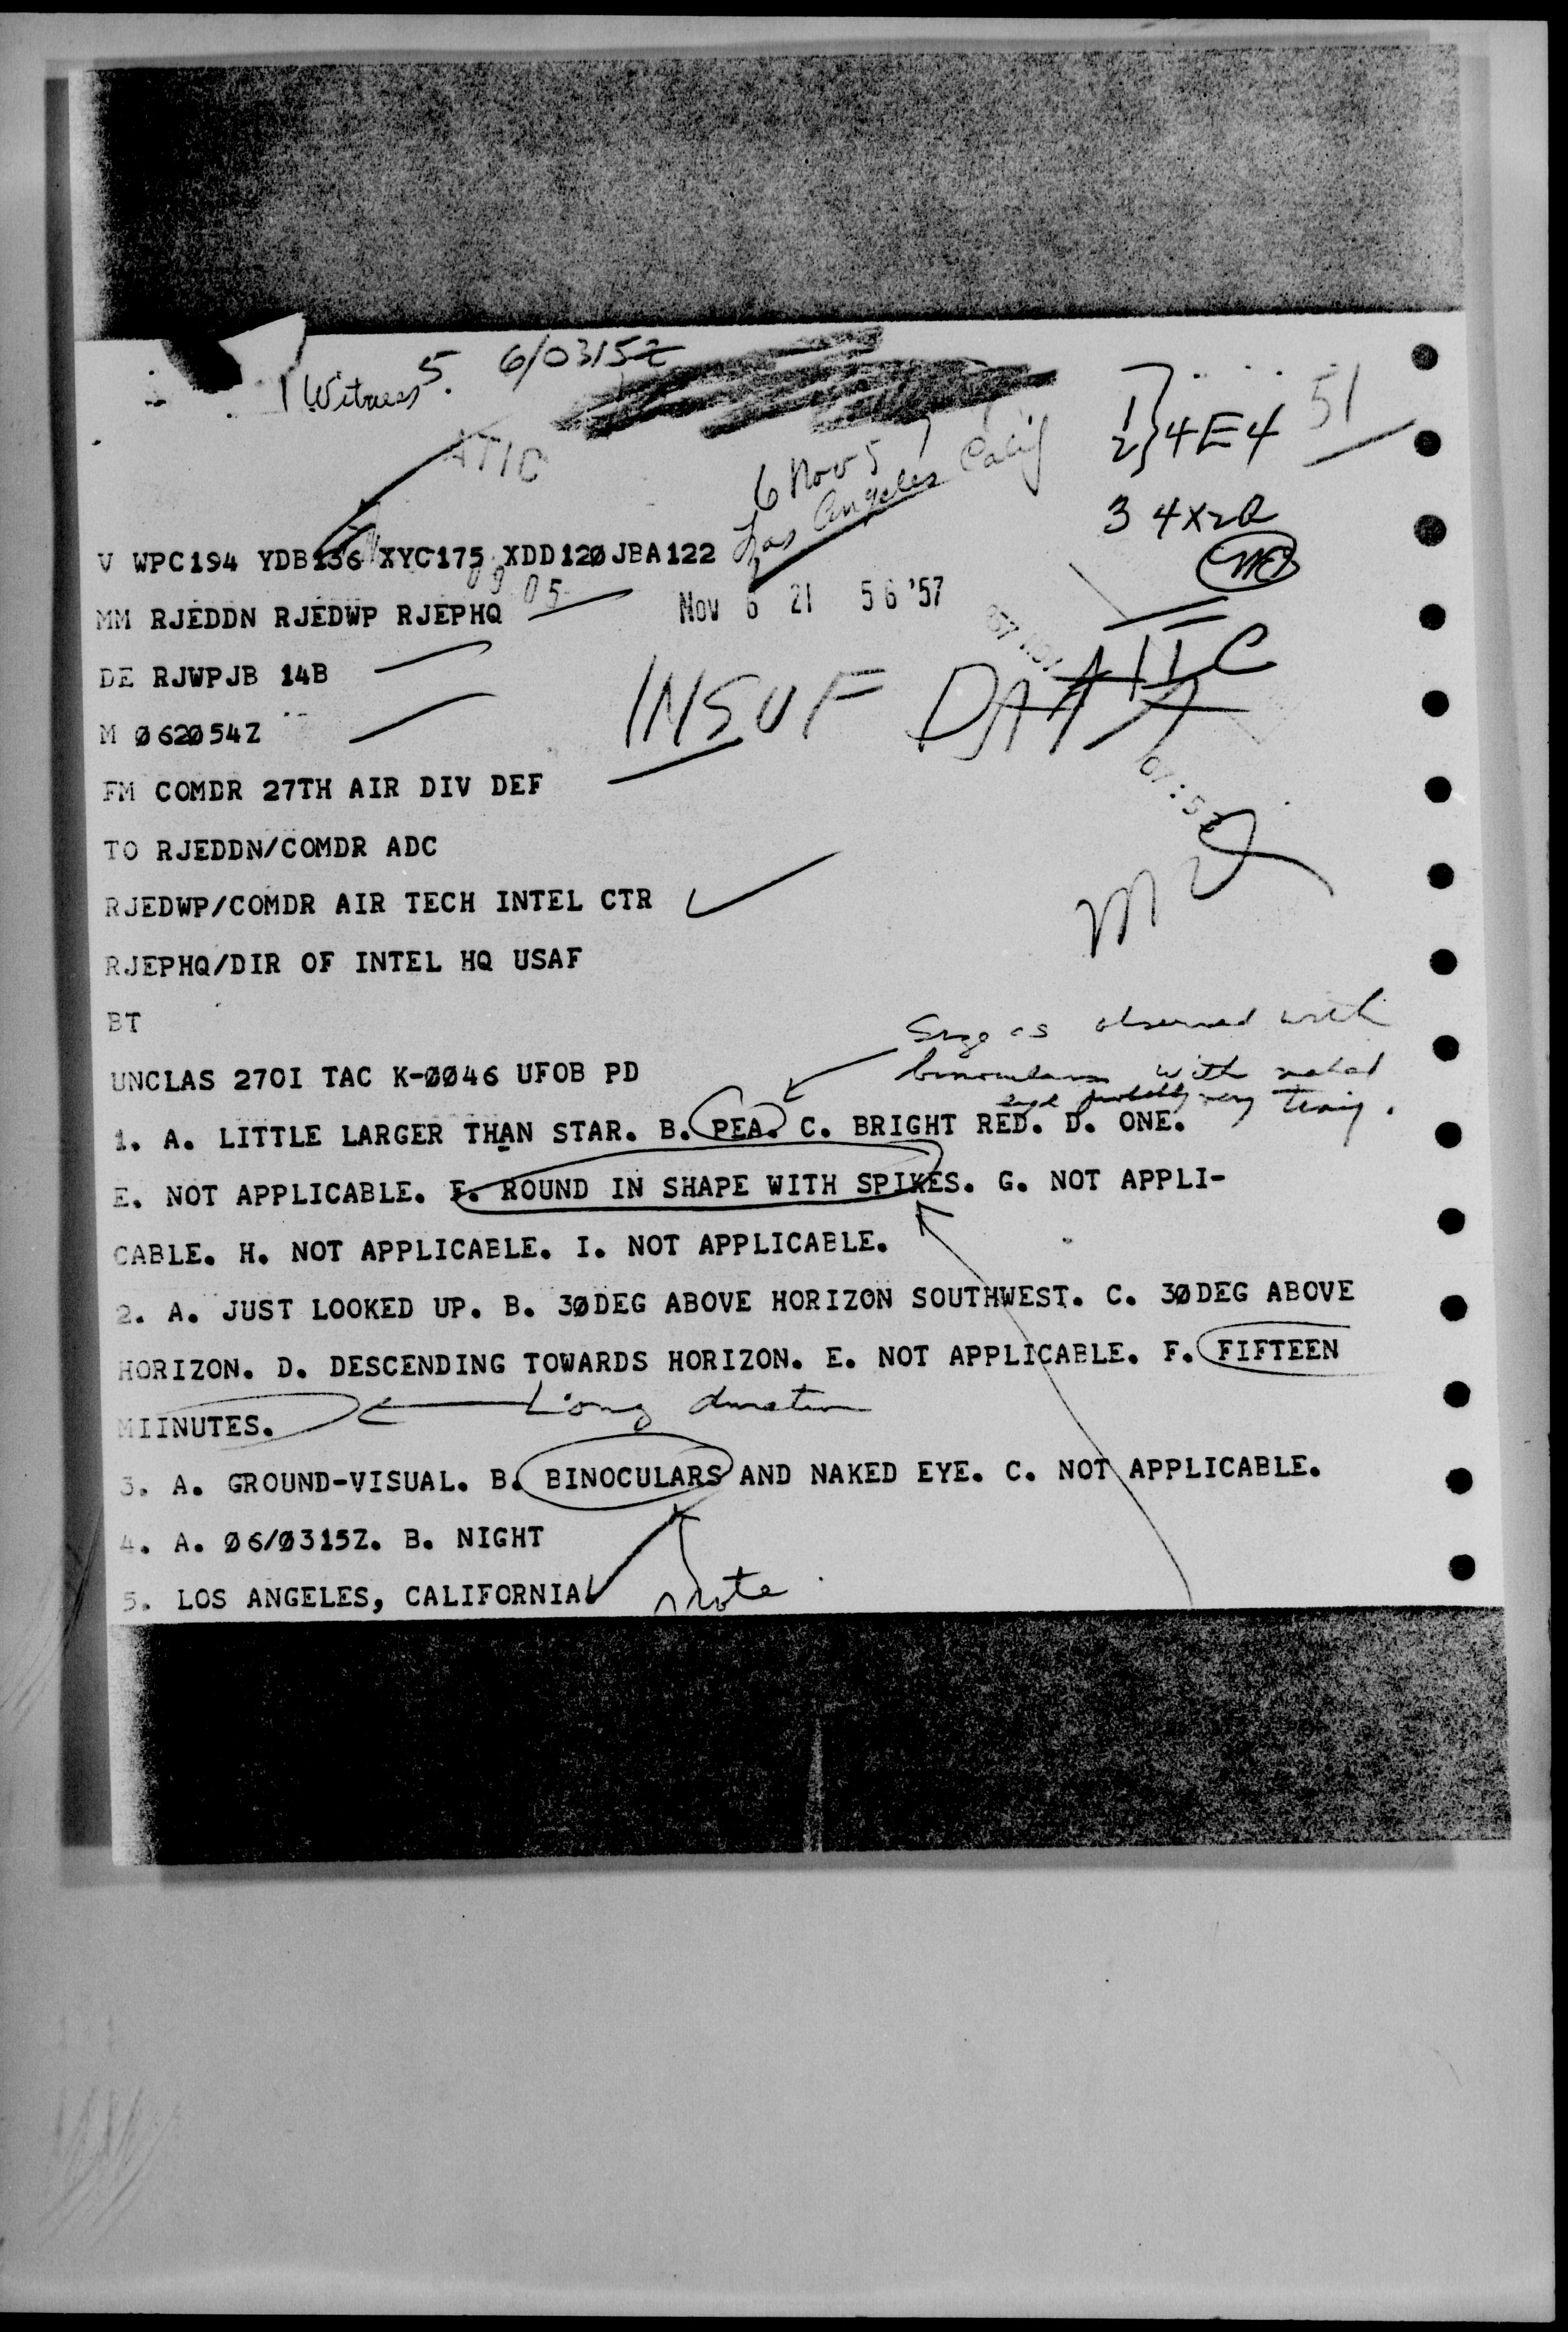 Witness 5. 6/0315Z
51
1
2 } 4E4
ATIC
6 Nov 57
Los Angeles Calif
3 4X2R
V WPC194 YDB136 XYC175 XDD120JBA122
09 05
Nov 6 21 56 '57
MM RJEDDN RJEDWP RJEPHQ
DE RJWPJB 14B
ATIC
INSUF DATA
M Ø62Ø54Z
FM COMDR 27TH AIR DIV DEF
TO RJEDDN/COMDR ADC
RJEDWP/COMDR AIR TECH INTEL CTR
RJEPHQ/DIR OF INTEL HQ USAF
BT
Size as observed with
binoculars with naked
eye probably very tiny.
UNCLAS 27OI TAC K-ØØ46 UFOB PD
1. A. LITTLE LARGER THAN STAR. B. PEA. C. BRIGHT RED. D. ONE.
E. NOT APPLICABLE. F. ROUND IN SHAPE WITH SPIKES. G. NOT APPLI-
CABLE. H. NOT APPLICABLE. I. NOT APPLICABLE.
2. A. JUST LOOKED UP. B. 3ØDEG ABOVE HORIZON SOUTHWEST. C. 3ØDEG ABOVE
HORIZON. D. DESCENDING TOWARDS HORIZON. E. NOT APPLICABLE. F. FIFTEEN
MIINUTES. Long duration
3. A. GROUND-VISUAL. B. BINOCULARS AND NAKED EYE. C. NOT APPLICABLE.
4. A. Ø6/Ø315Z. B. NIGHT
5. LOS ANGELES, CALIFORNIA
Note